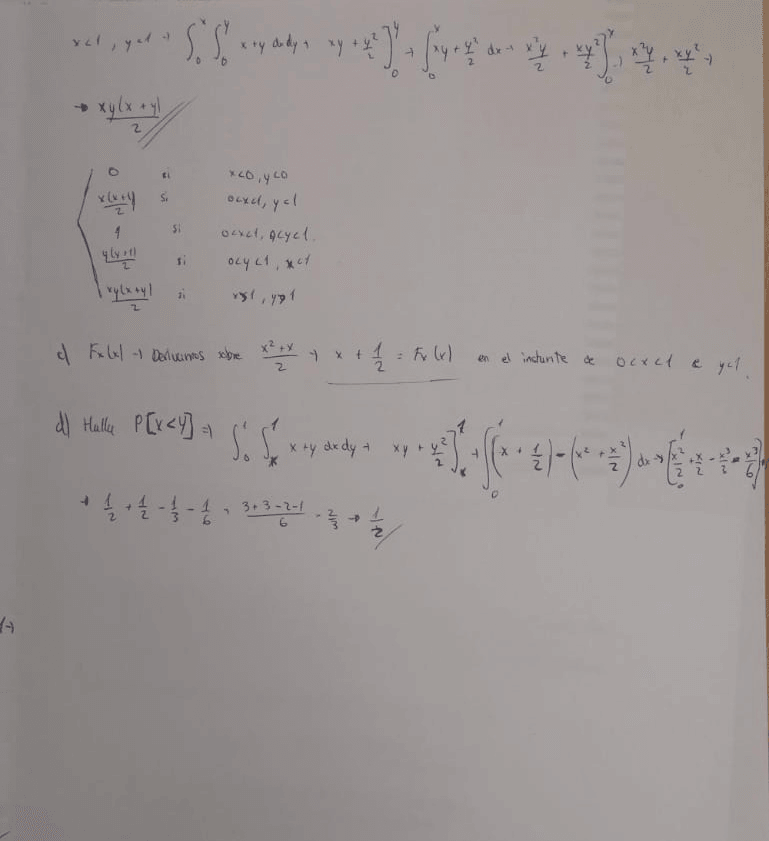 x<1, y<1 → ∫₀ˣ ∫₀ʸ x+y dxdy → xy + y²/2 ]₀ʸ → ∫₀ˣ xy + y²/2 dx → x²y/2 + xy²/2 ]₀ˣ → x²y/2 + xy²/2 →
→ xy(x+y)/2
0 si x<0, y<0
x(x+1)/2 si 0<x<1, y<1
1 si 0<x<1, 0<y<1.
y(y+1)/2 si 0<y<1, x<1
xy(x+y)/2 si x>1, y>1
c) Fx(x) → Derivamos sobre x²+x/2 → x + 1/2 = Fx(x) en el instante de 0<x<1 e y<1.
d) Halla P[X<Y] ⇒ ∫₀¹ ∫ₓ¹ x+y dxdy → xy + y²/2 ]ₓ¹ → ∫₀¹ (x + 1/2) - (x² + x²/2) dx → [x²/2 + x/2 - x³/3 - x³/6]₀¹
→ 1/2 + 1/2 - 1/3 - 1/6 = 3+3-2-1/6 - 2/3 → 1/2